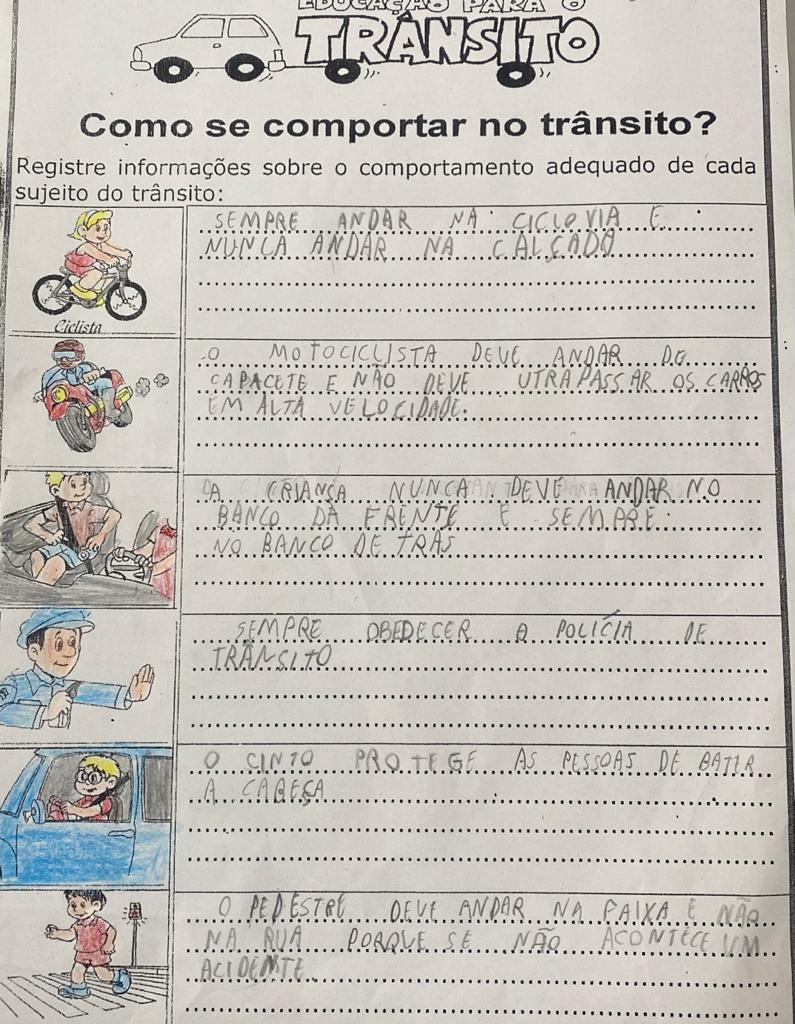 EDUCAÇÃO PARA O
TRÂNSITO
Como se comportar no trânsito?
Registre informações sobre o comportamento adequado de cada
sujeito do trânsito:
SEMPRE ANDAR NA CICLOVIA E
NUNCA ANDAR NA CALÇADA
Ciclista
O MOTOCICLISTA DEVE ANDAR DE
CAPACETE E NÃO DEVE UTRAPASSAR OS CARROS
EM ALTA VELOCIDADE.
A CRIANÇA NUNCA DEVE ANDAR NO
BANCO DA FRENTE E SEMPRE
NO BANCO DE TRÁS
SEMPRE OBEDECER A POLÍCIA DE
TRÂNSITO
O CINTO PROTEGE AS PESSOAS DE BATER
A CABEÇA
O PEDESTRE DEVE ANDAR NA FAIXA E NÃO
NA RUA PORQUE SE NÃO ACONTECE UM
ACIDENTE